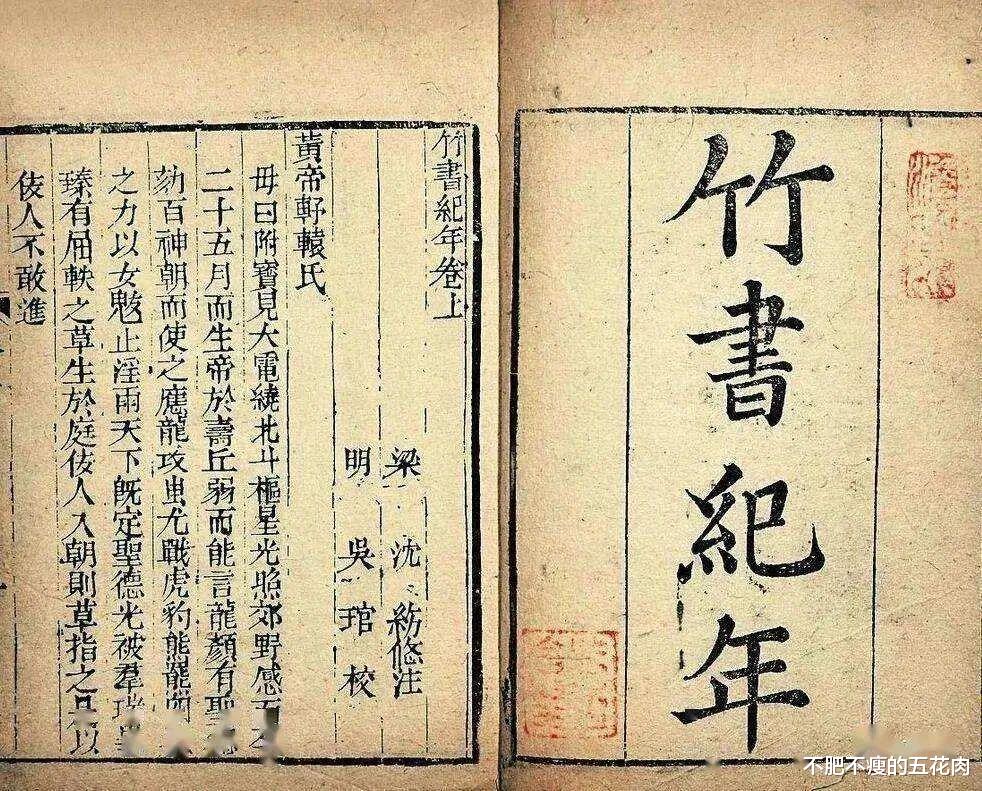 竹書紀年
竹書紀年卷上
梁 沈約 附注
明 吳琯 校
黃帝軒轅氏
母曰附寶見大電繞北斗樞星光照郊野感而
二十五月而生帝於壽丘弱而能言龍顏有聖
劾百神朝而使之應龍攻蚩尤戰虎豹熊羆四
之力以女魃止淫雨天下旣定聖德光被羣瑞畢
臻有屈軼之草生於庭佞人入朝則草指之是以
佞人不敢進
不肥不瘦的五花肉